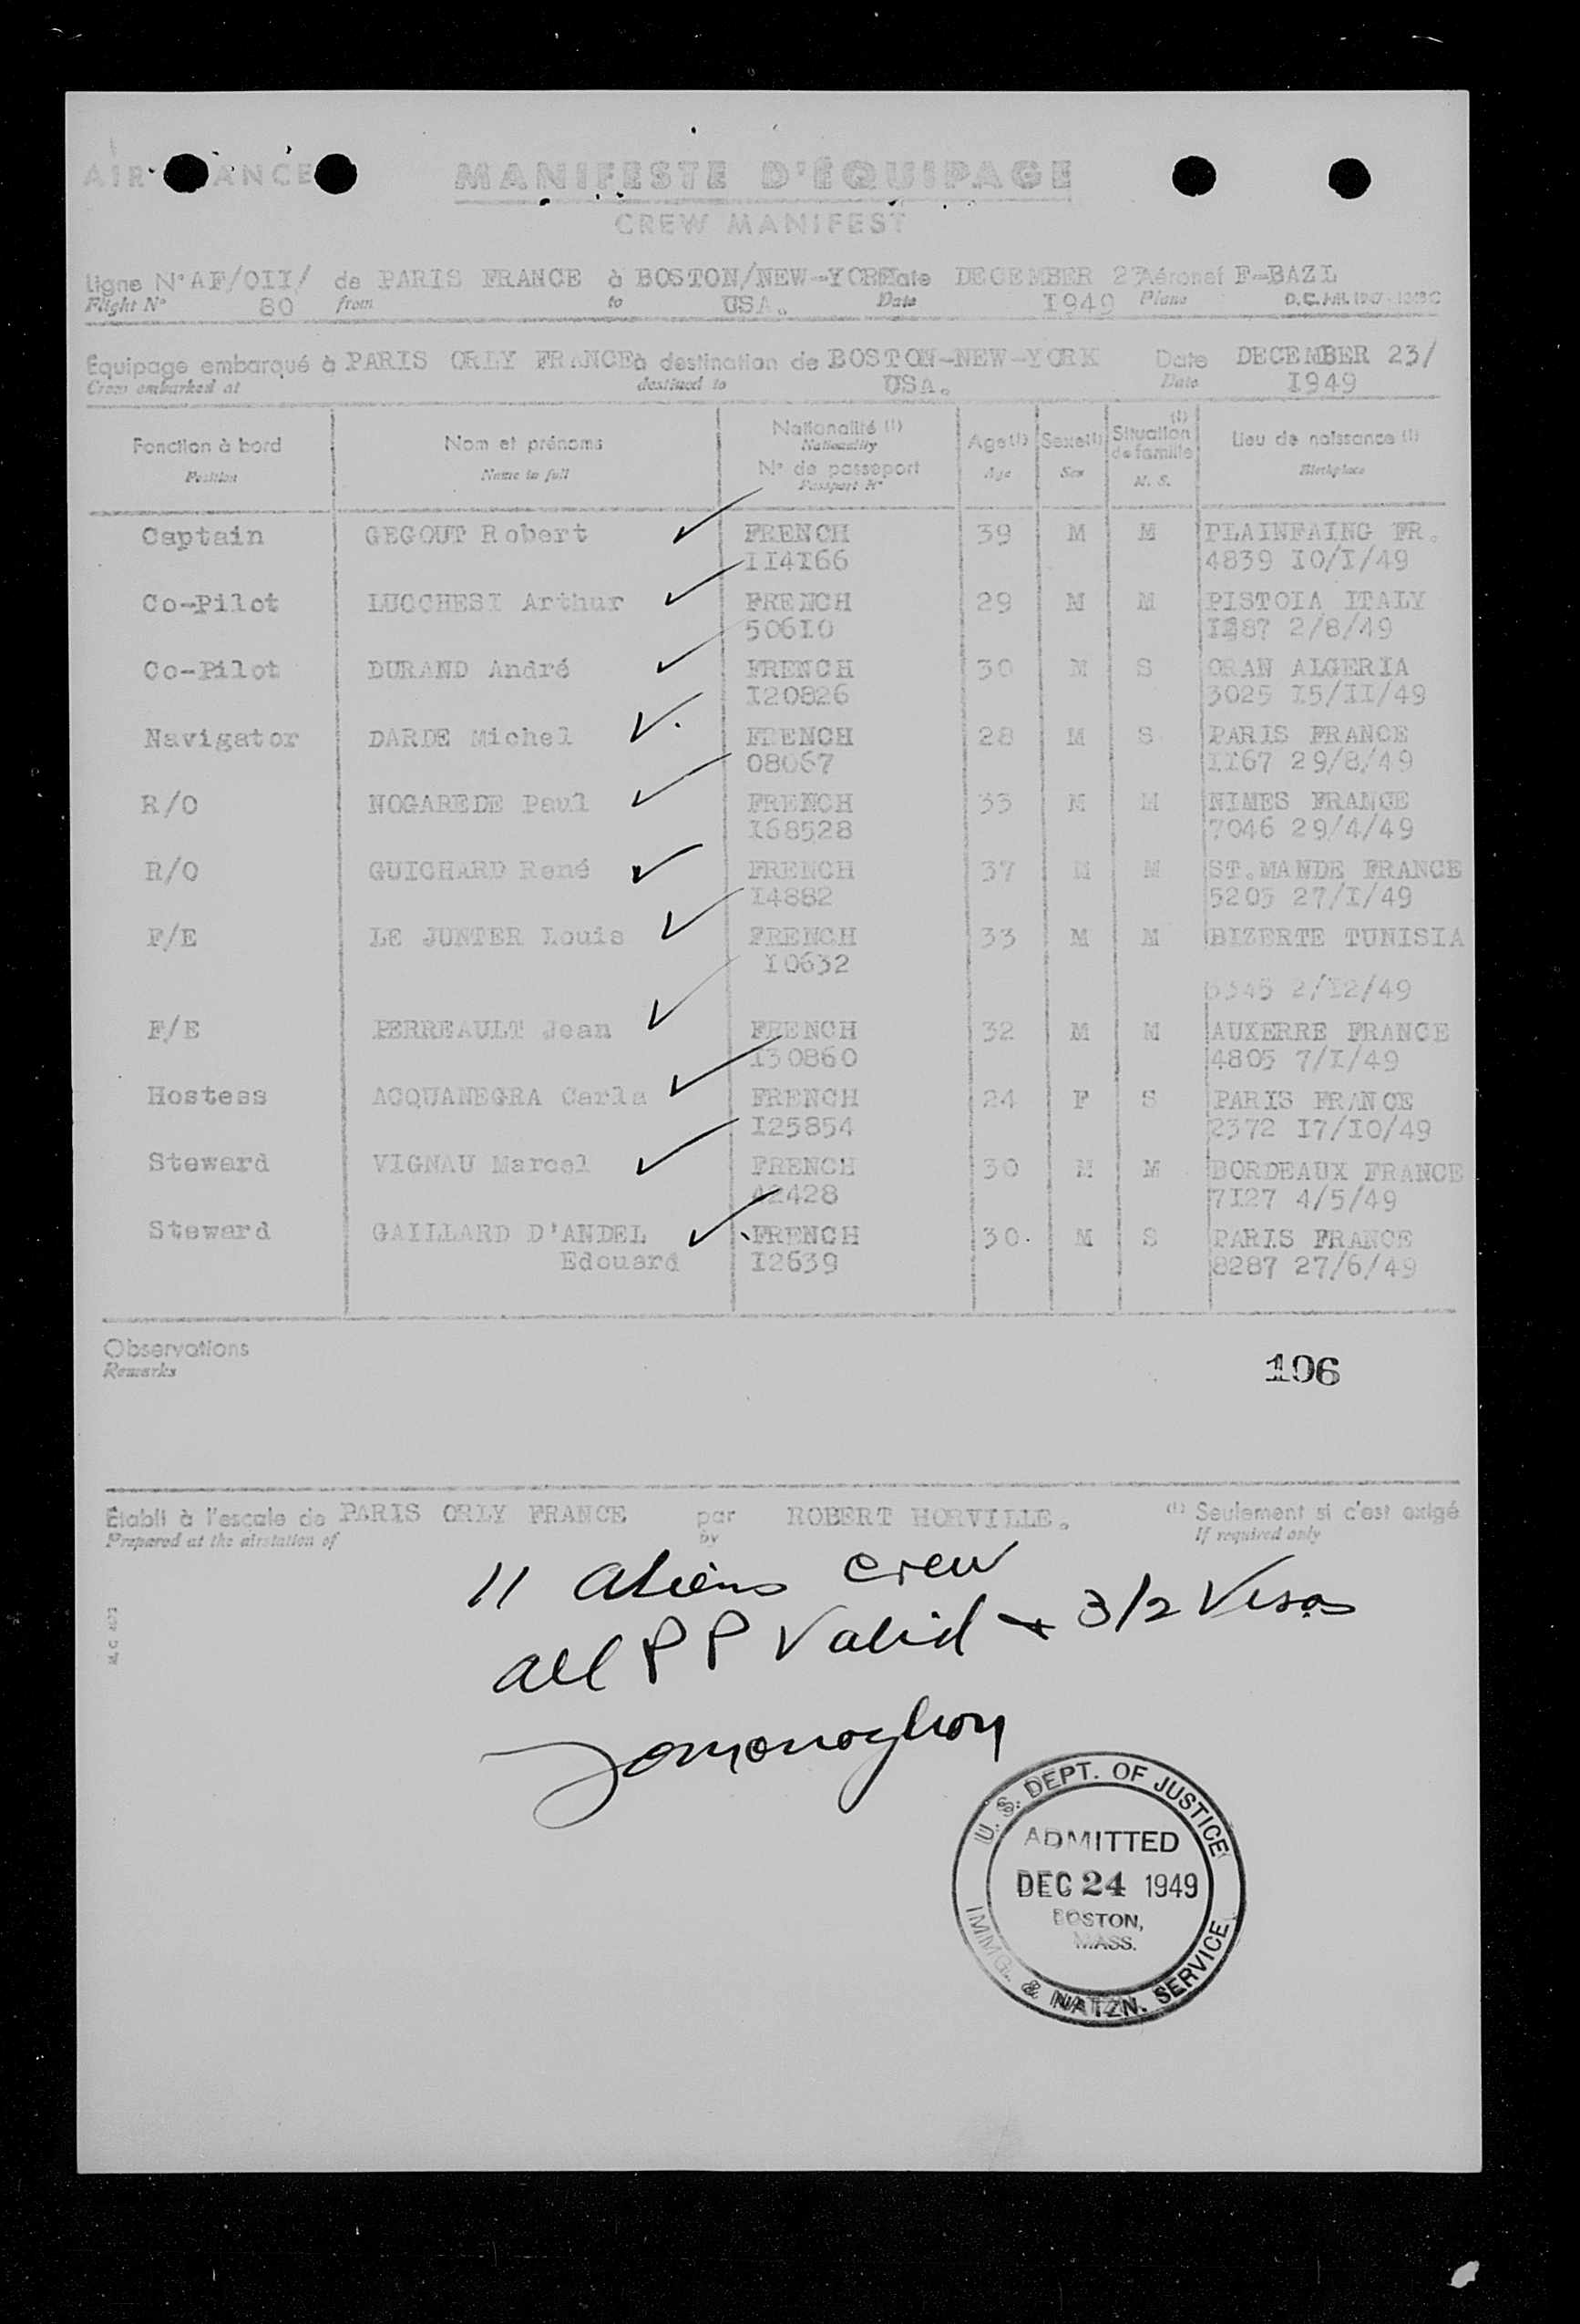 AIR ANCE
MANIFESTE D'ÉQUIPAGE
CREW MANIFEST
Ligne N° AF/OII/ de PARIS FRANCE à BOSTON/NEW-YORK Date DECEMBER 23 Aéronef F-BAZL
Flight N° 80 from to USA. Date 1949 Plane
Equipage embarqué à PARIS ORLY FRANCE à destination de BOSTON-NEW-YORK Date DECEMBER 23/
Crew embarked at destined to USA. Date I949
Fonction à bord Nom et prénoms Nationalité (1) Age (1) Sexe (1) Situation de famille (1) Lieu de naissance (1)
Position Name in full Nationality Age Sex M. S. Birthplace
N° de passeport
Passport N°
Captain GEGOUT Robert FRENCH 39 M M PLAINFAING FR.
II4I66 4839 I0/I/49
Co-Pilot LUCCHESI Arthur FRENCH 29 M M PISTOIA ITALY
506I0 I287 2/8/49
Co-Pilot DURAND André FRENCH 30 M S ORAN ALGERIA
I20826 3025 I5/II/49
Navigator DARDE Michel FRENCH 28 M S PARIS FRANCE
08067 II67 29/8/49
R/O NOGAREDE Paul FRENCH 33 M M NIMES FRANCE
I68528 7046 29/4/49
R/O GUICHARD René FRENCH 37 M M ST.MANDE FRANCE
I4882 5205 27/I/49
F/E LE JUNTER Louis FRENCH 33 M M BIZERTE TUNISIA
I0632
5345 2/I2/49
F/E PERREAULT Jean FRENCH 32 M M AUXERRE FRANCE
I30860 4805 7/I/49
Hostess ACQUANEGRA Carla FRENCH 24 F S PARIS FRANCE
I25854 2372 I7/I0/49
Steward VIGNAU Marcel FRENCH 30 M M BORDEAUX FRANCE
42428 7I27 4/5/49
Steward GAILLARD D'ANDEL FRENCH 30. M S PARIS FRANCE
Edouard I2639 8287 27/6/49
Observations
Remarks
106
Etabli à l'escale de PARIS ORLY FRANCE par ROBERT HORVILLE. (1) Seulement si c'est exigé
Prepared at the airstation of by If required only
11 aliens crew
all PP Valid + 3/2 Visas
U. S. DEPT. OF JUSTICE
ADMITTED
DEC 24 1949
BOSTON,
MASS.
IMMG. & NATZN. SERVICE